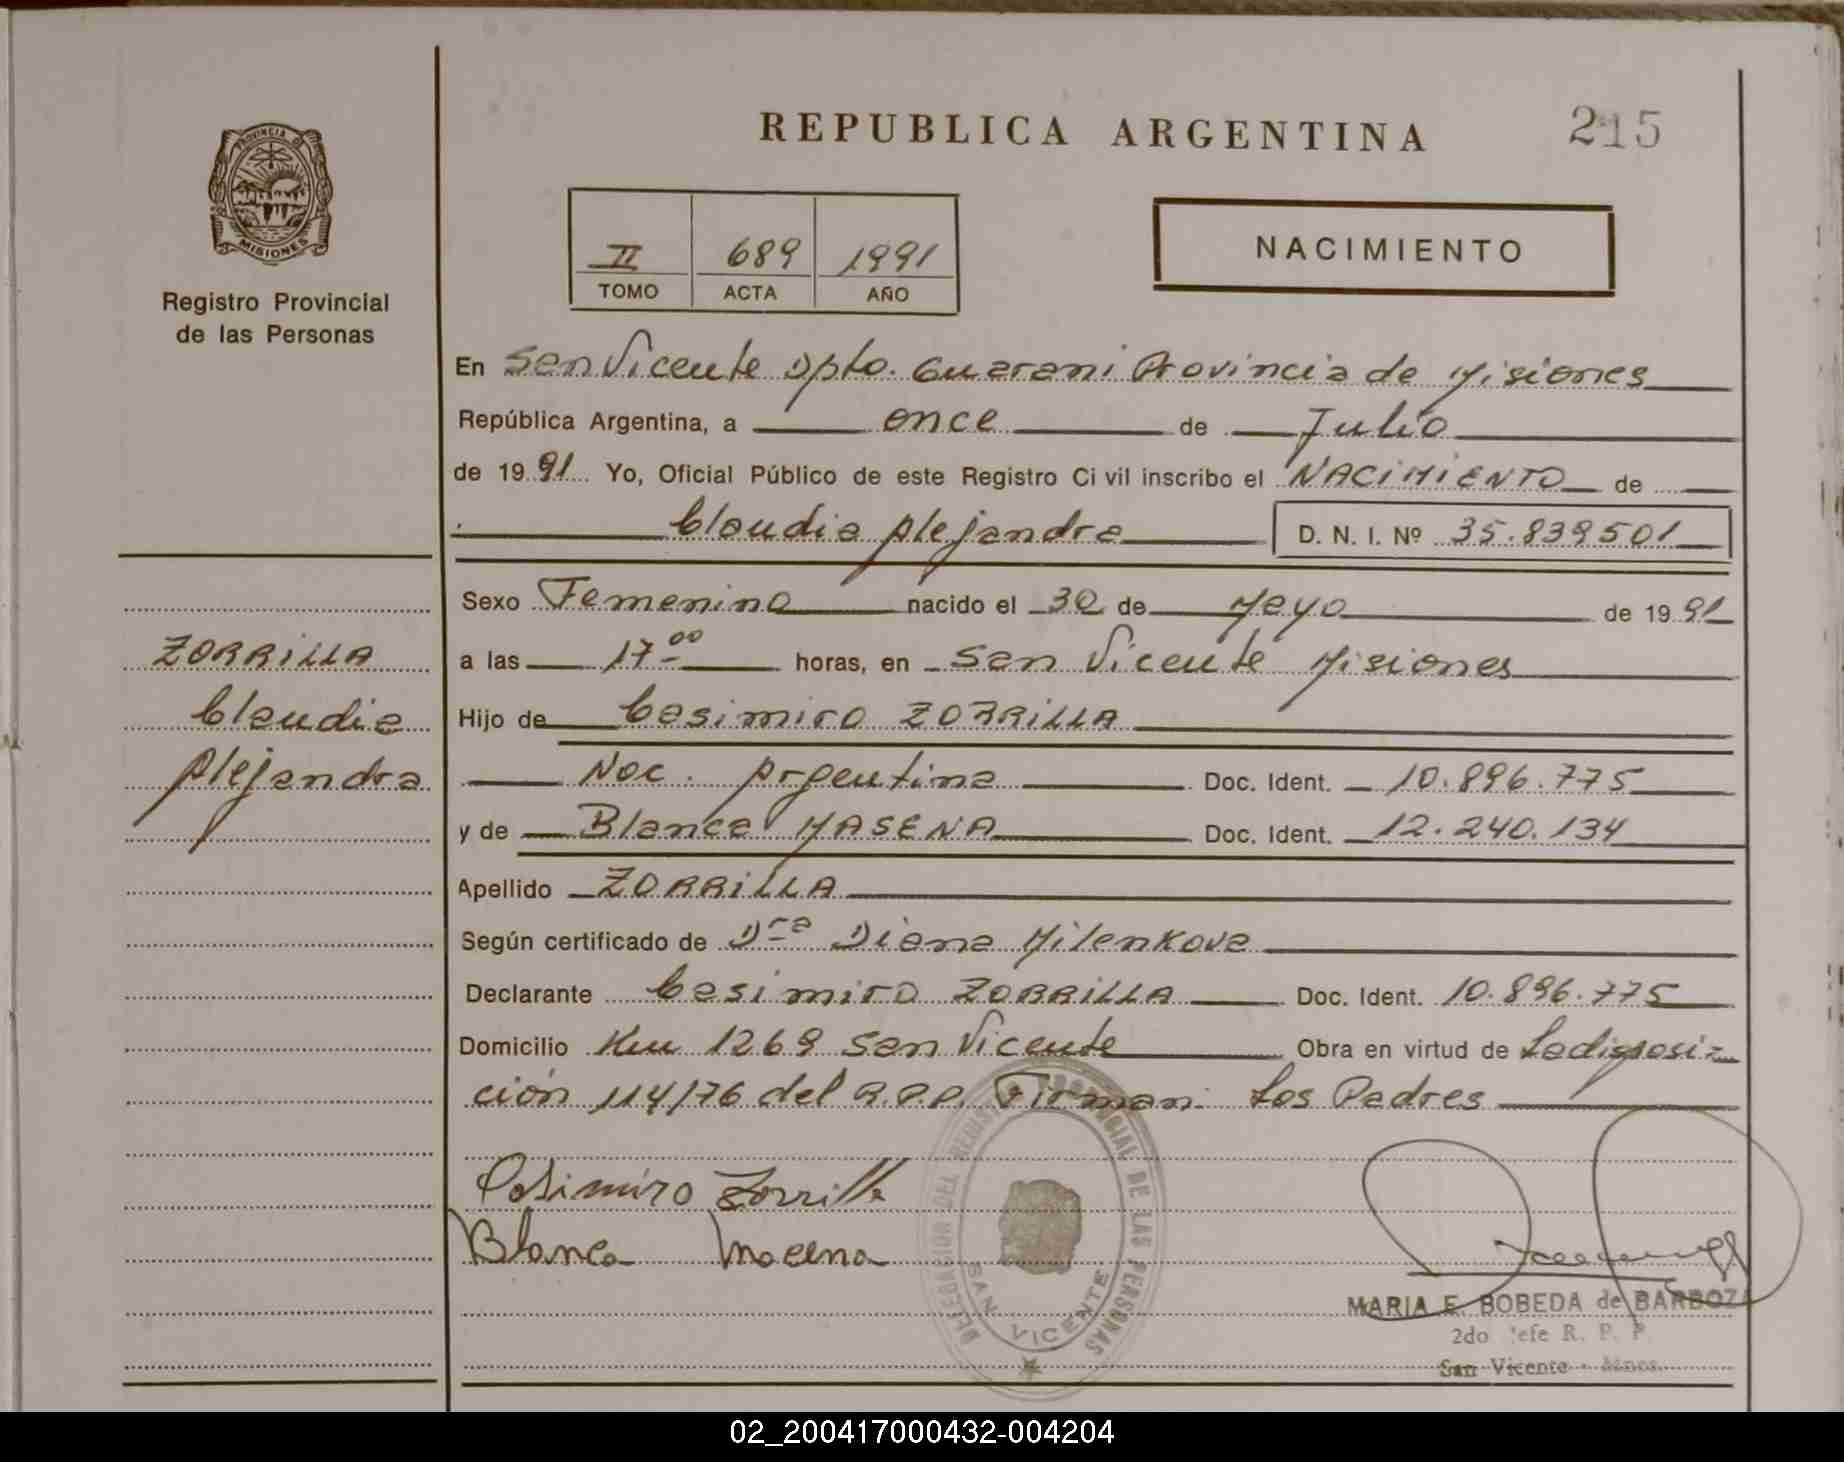 REPUBLICA ARGENTINA 215
PROVINCIA DE
MISIONES
Registro Provincial
de las Personas
II 689 1991
TOMO ACTA AÑO
NACIMIENTO
En San Vicente Dpto. Guarani Provincia de Misiones
República Argentina, a once de Julio
de 1991 Yo, Oficial Público de este Registro Civil inscribo el NACIMIENTO de
Claudia Alejandra D. N. I. Nº 35.839501
Sexo Femenino nacido el 30 de Mayo de 1991
ZORRILLA
Claudia
Alejandra
a las 17 00 horas, en San Vicente Misiones
Hijo de Casimiro ZORRILLA
Nac. Argentina Doc. Ident. 10.896.775
y de Blanca MASENA Doc. Ident. 12.240.134
Apellido ZORRILLA
Según certificado de Dra Diana Milenkova
Declarante Casimiro ZORRILLA Doc. Ident. 10.896.775
Domicilio Km 1269 San Vicente Obra en virtud de La disposi-
ción 114/76 del R.P.P. Firman: Los Padres
Casimiro Zorrilla
Blanca Macena
DELEGACION DEL REGISTRO PROVINCIAL DE LAS PERSONAS
SAN VICENTE
MARIA E. BOBEDA de BARBOZA
2do Jefe R. P. P.
San Vicente - Mnes.
02_200417000432-004204